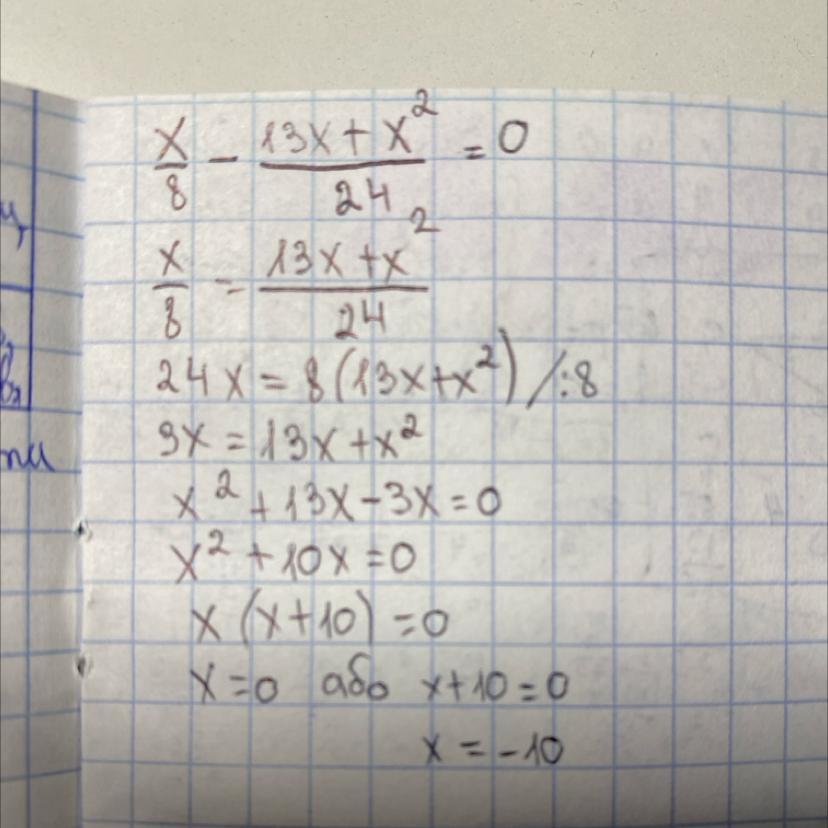 x/8 - (13x + x²)/24 = 0
x/8 = (13x + x²)/24
24x = 8(13x+x²) /:8
3x = 13x + x²
x² + 13x - 3x = 0
x² + 10x = 0
x (x+10) = 0
x = 0 або x+10 = 0
x = -10